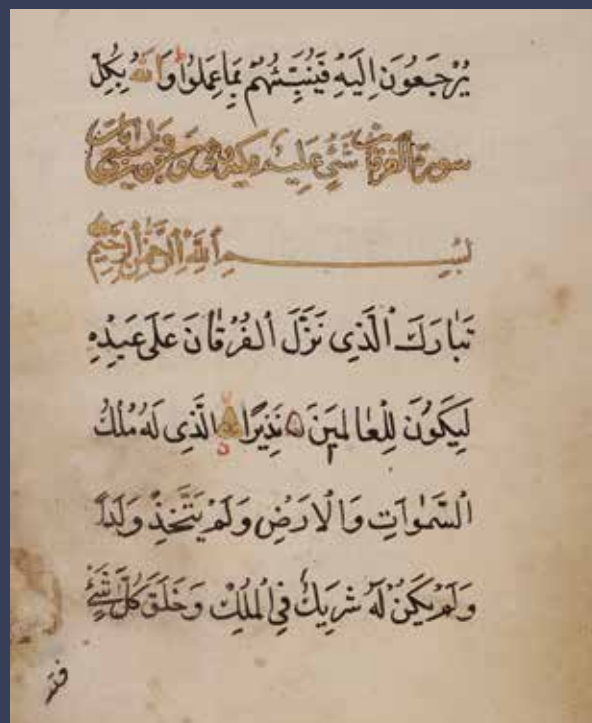 يُرْجَعُونَ اِلَيْهِ فَيُنَبِّئُهُمْ بِمَا عَمِلُوا وَاللّٰهُ بِكُلِّ
سورة الفرقان شَيْءٍ عَلِيمٌ مكية وهى
بِسْمِ ٱللَّهِ ٱلرَّحْمٰنِ ٱلرَّحِيمِ
تَبَارَكَ ٱلَّذِى نَزَّلَ ٱلفُرْقَانَ عَلَى عَبْدِهِ
لِيَكُونَ لِلْعَالَمِينَ نَذِيرًا الَّذِى لَهُ مُلْكُ
السَّمٰوَاتِ وَالْاَرْضِ وَلَمْ يَتَّخِذْ وَلَدًا
وَلَمْ يَكُنْ لَهُ شَرِيكٌ فِى الْمُلْكِ وَخَلَقَ كُلَّ شَيْءٍ
فقد